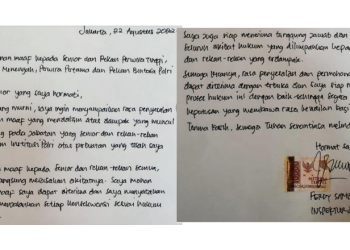 Jakarta, 22 Agustus 2022
maaf kepada Senior dan Rekan Perwira Tinggi,
Menengah, Perwira Pertama dan Rekan Bintara Polri
yang saya hormati,
murni, saya ingin menyampaikan rasa
maaf yang mendalam atas dampak yang muncul
pada jabatan yang senior dan rekan-rekan
institusi Polri atas perbuatan yang telah saya
maaf kepada senior dan rekan-rekan semua,
langsung merasakan akibatnya. Saya mohon
maaf saya dapat diterima dan saya menyatakan
menjalankan setiap konsekuensi sesuai hukum
Saya juga siap menerima tanggung jawab dan
seluruh akibat hukum yang dilimpahkan kepada
dan rekan-rekan yang terdampak.
Semoga kiranya, rasa penyesalan dan permohonan
dapat diterima dengan terbuka dan saya siap
proses hukum ini dengan baik sehingga segera
keputusan yang membawa rasa keadilan bagi
Terima kasih, semoga Tuhan senantiasa
Hormat
FERDY SAMBO
INSPEKTUR